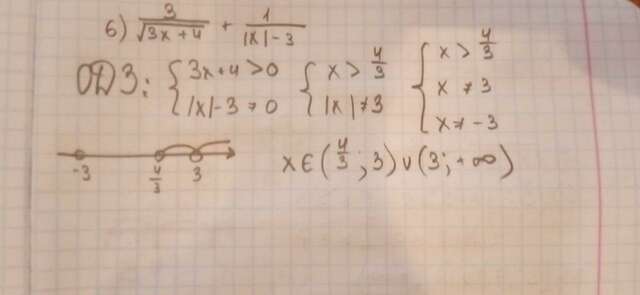 6) 3/√(3x+4) + 1/(|x|-3)
ОДЗ: { 3x+4 > 0 { x > 4/3 { x > 4/3
{ |x|-3 ≠ 0 { |x| ≠ 3 x ≠ 3
x ≠ -3
-3 4/3 3 x ∈ (4/3; 3) ∪ (3; +∞)